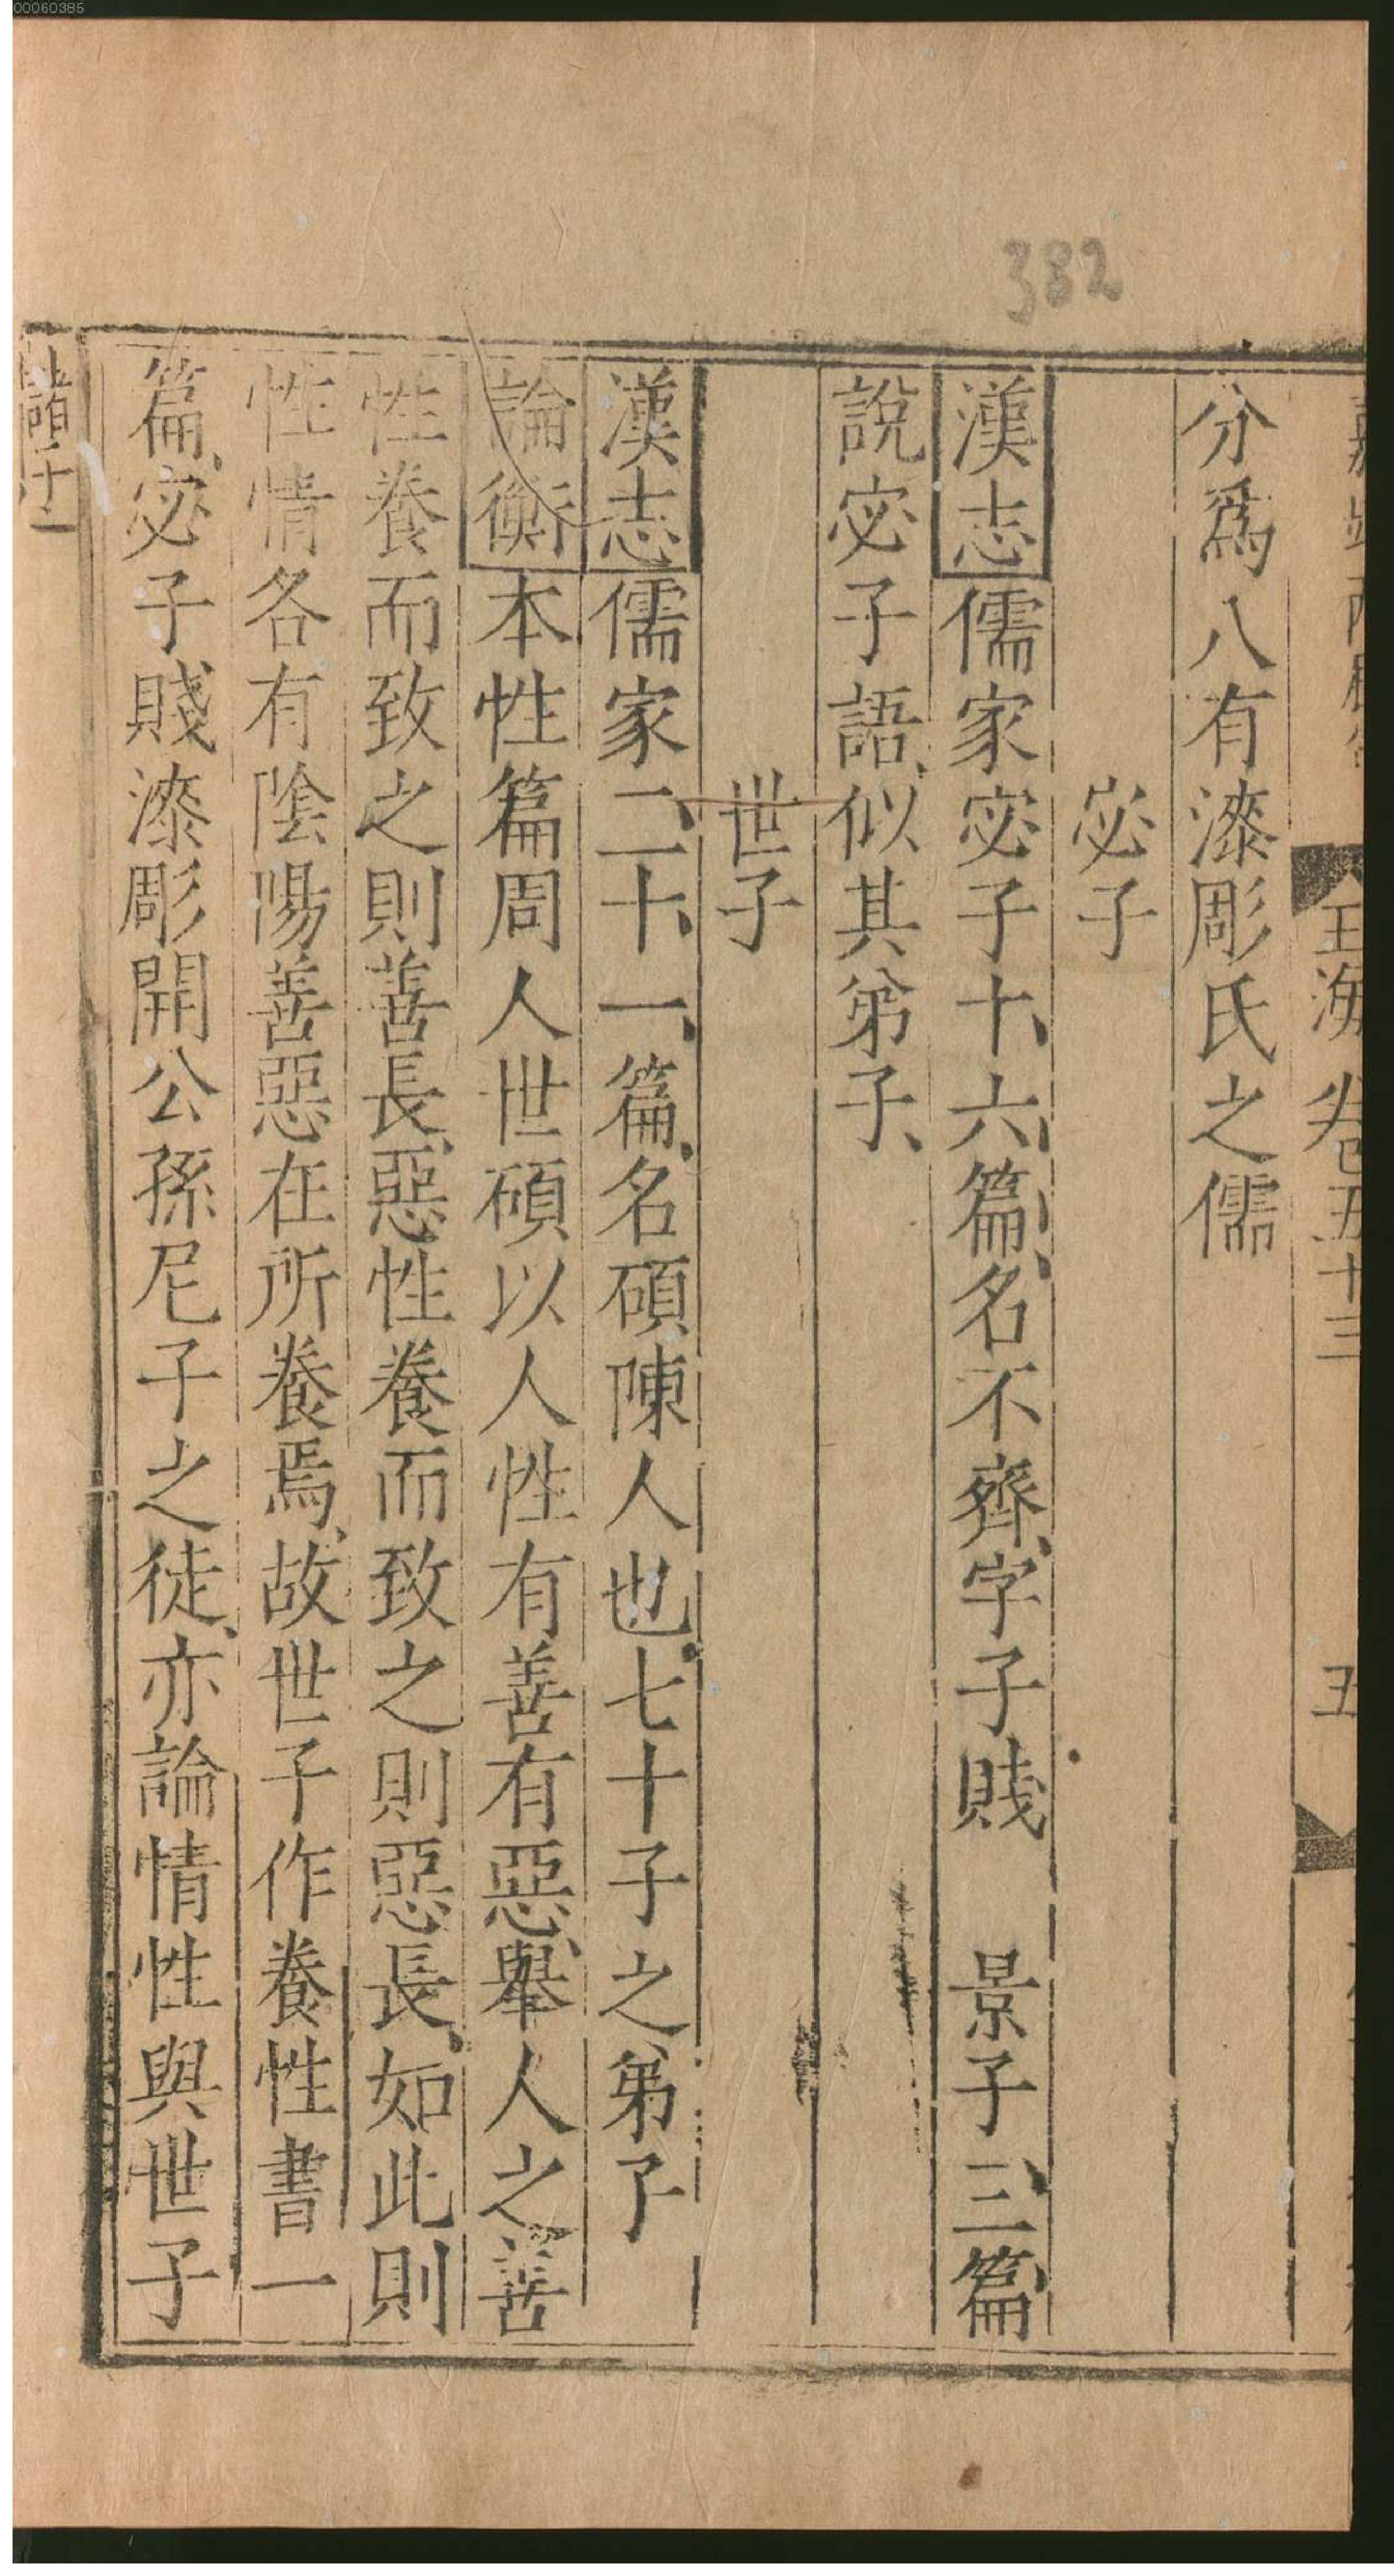 00060385
382
玉海卷五十三
五
分爲八有漆彫氏之儒
宓子
漢志儒家宓子十六篇名不齊字子賤　景子三篇
說宓子語似其弟子
世子
漢志儒家二十一篇名碩陳人也七十子之弟子
論衡本性篇周人世碩以人性有善有惡舉人之善
性養而致之則善長惡性養而致之則惡長如此則
性情各有陰陽善惡在所養焉故世子作養性書一
篇宓子賤漆彫開公孫尼子之徒亦論情性與世子